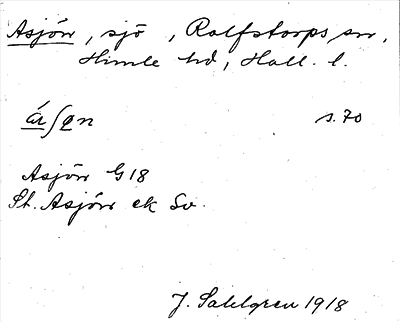 Asjön, sjö, Rolfstorps sn,
Himle hd, Hall. l.
ásʃøn s. 70
Asjön G 18
St. Asjön ek Sv.
J. Sahlgren 1918